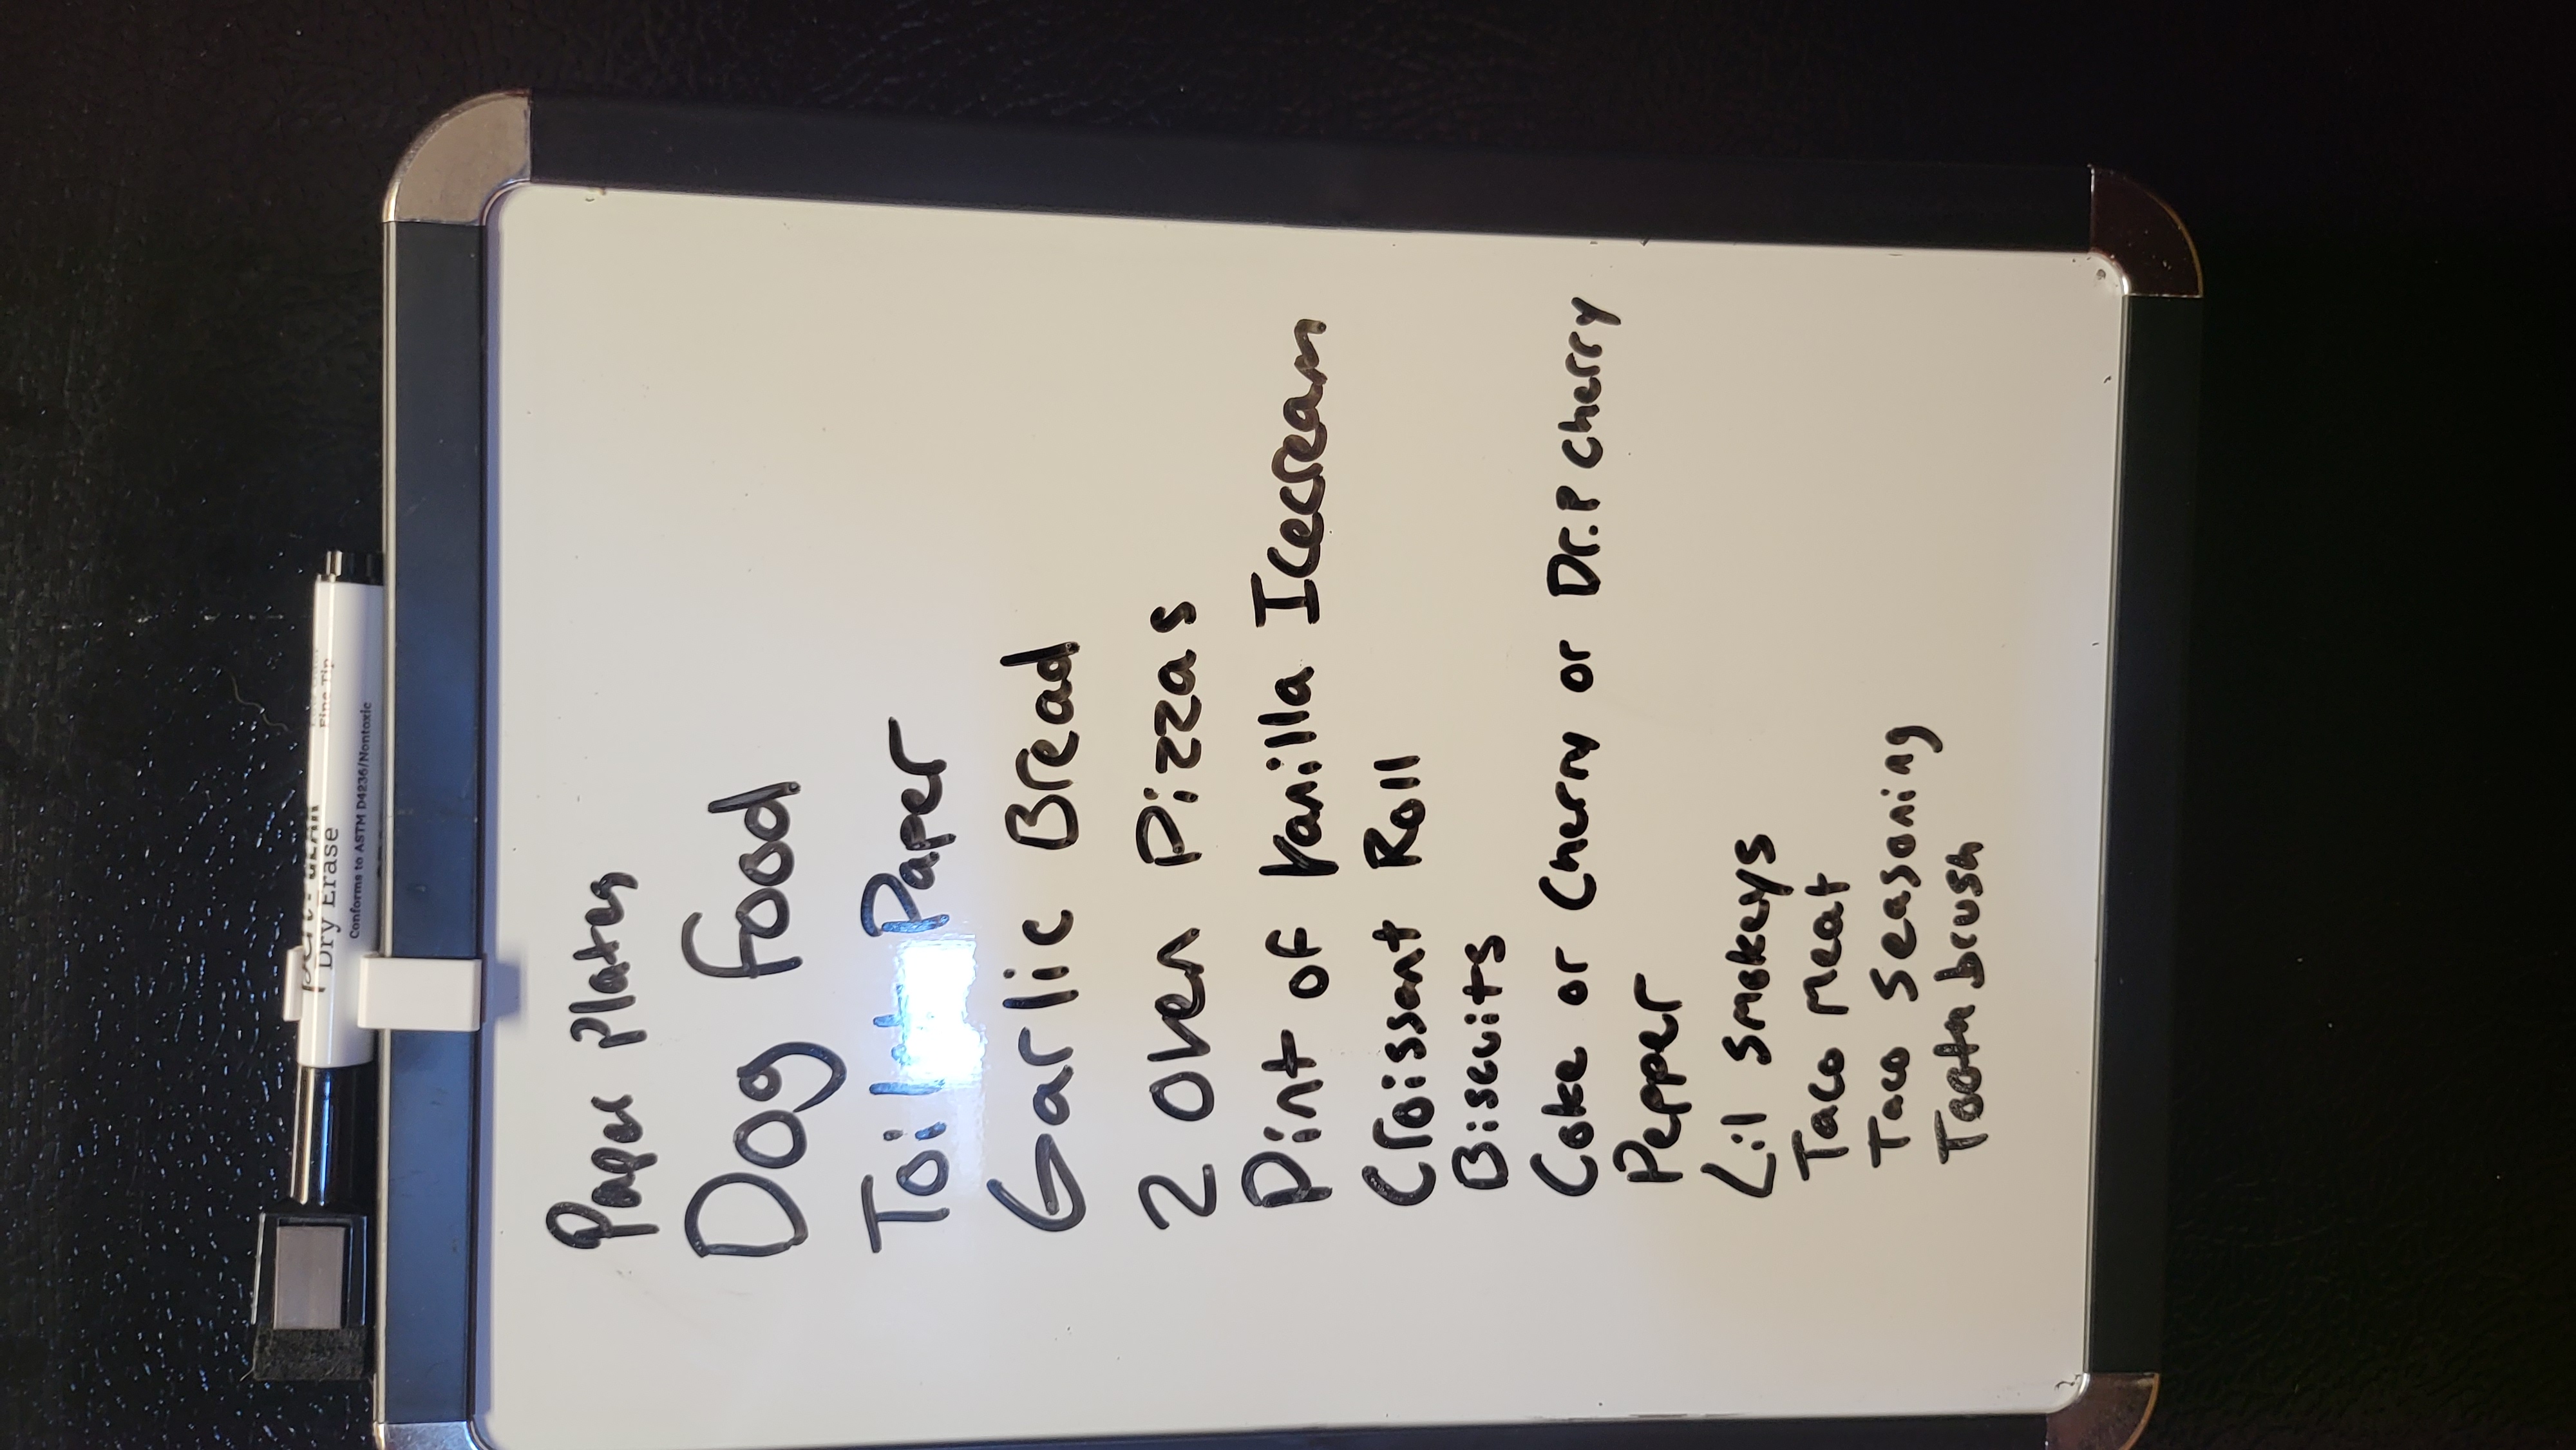 Paper plates
Dog food
Toilet Paper
Garlic Bread
2 Oven Pizzas
Pint of Vanilla Icecream
Croissant Roll
Biscuits
Coke or Cherry or Dr.P Cherry
Pepper
Lil smokeys
Taco meat
Taco seasoning
Tooth brush
Fine Tip
Dry Erase
Conforms to ASTM D4236/Nontoxic